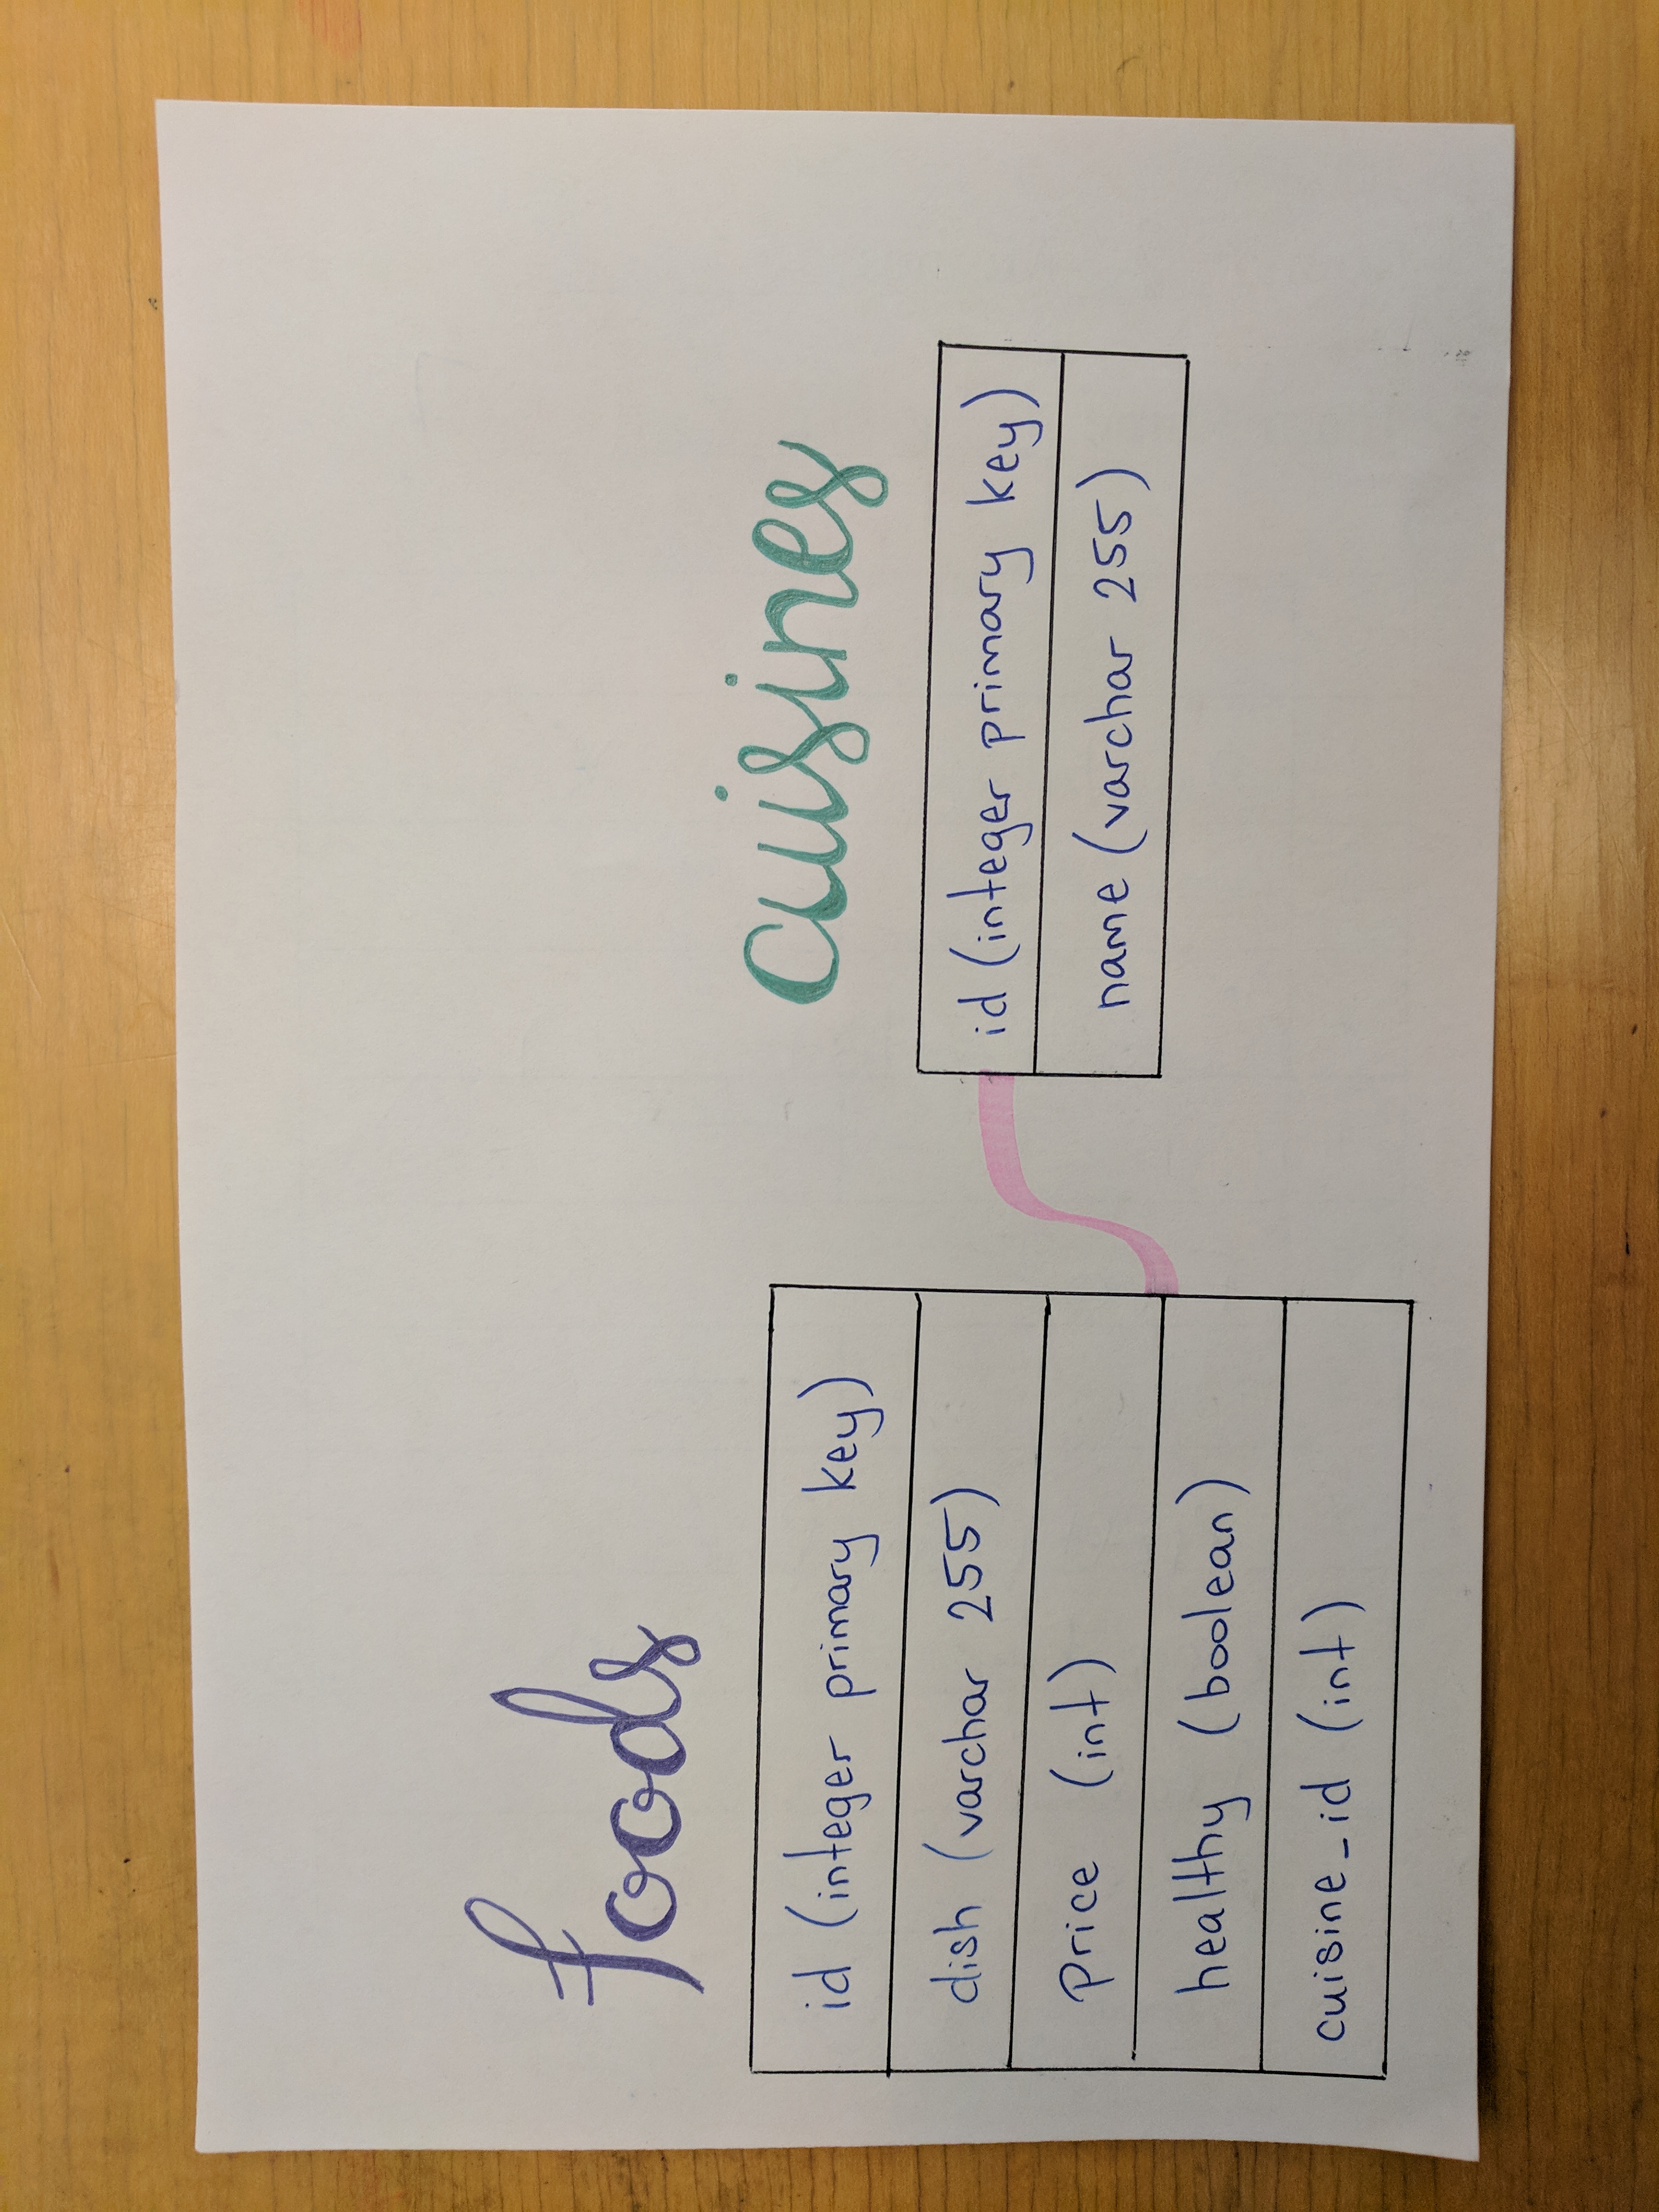 foods
id (integer primary key)
dish (varchar 255)
Price (int)
healthy (boolean)
cuisine_id (int)
cuisines
id (integer primary key)
name (varchar 255)